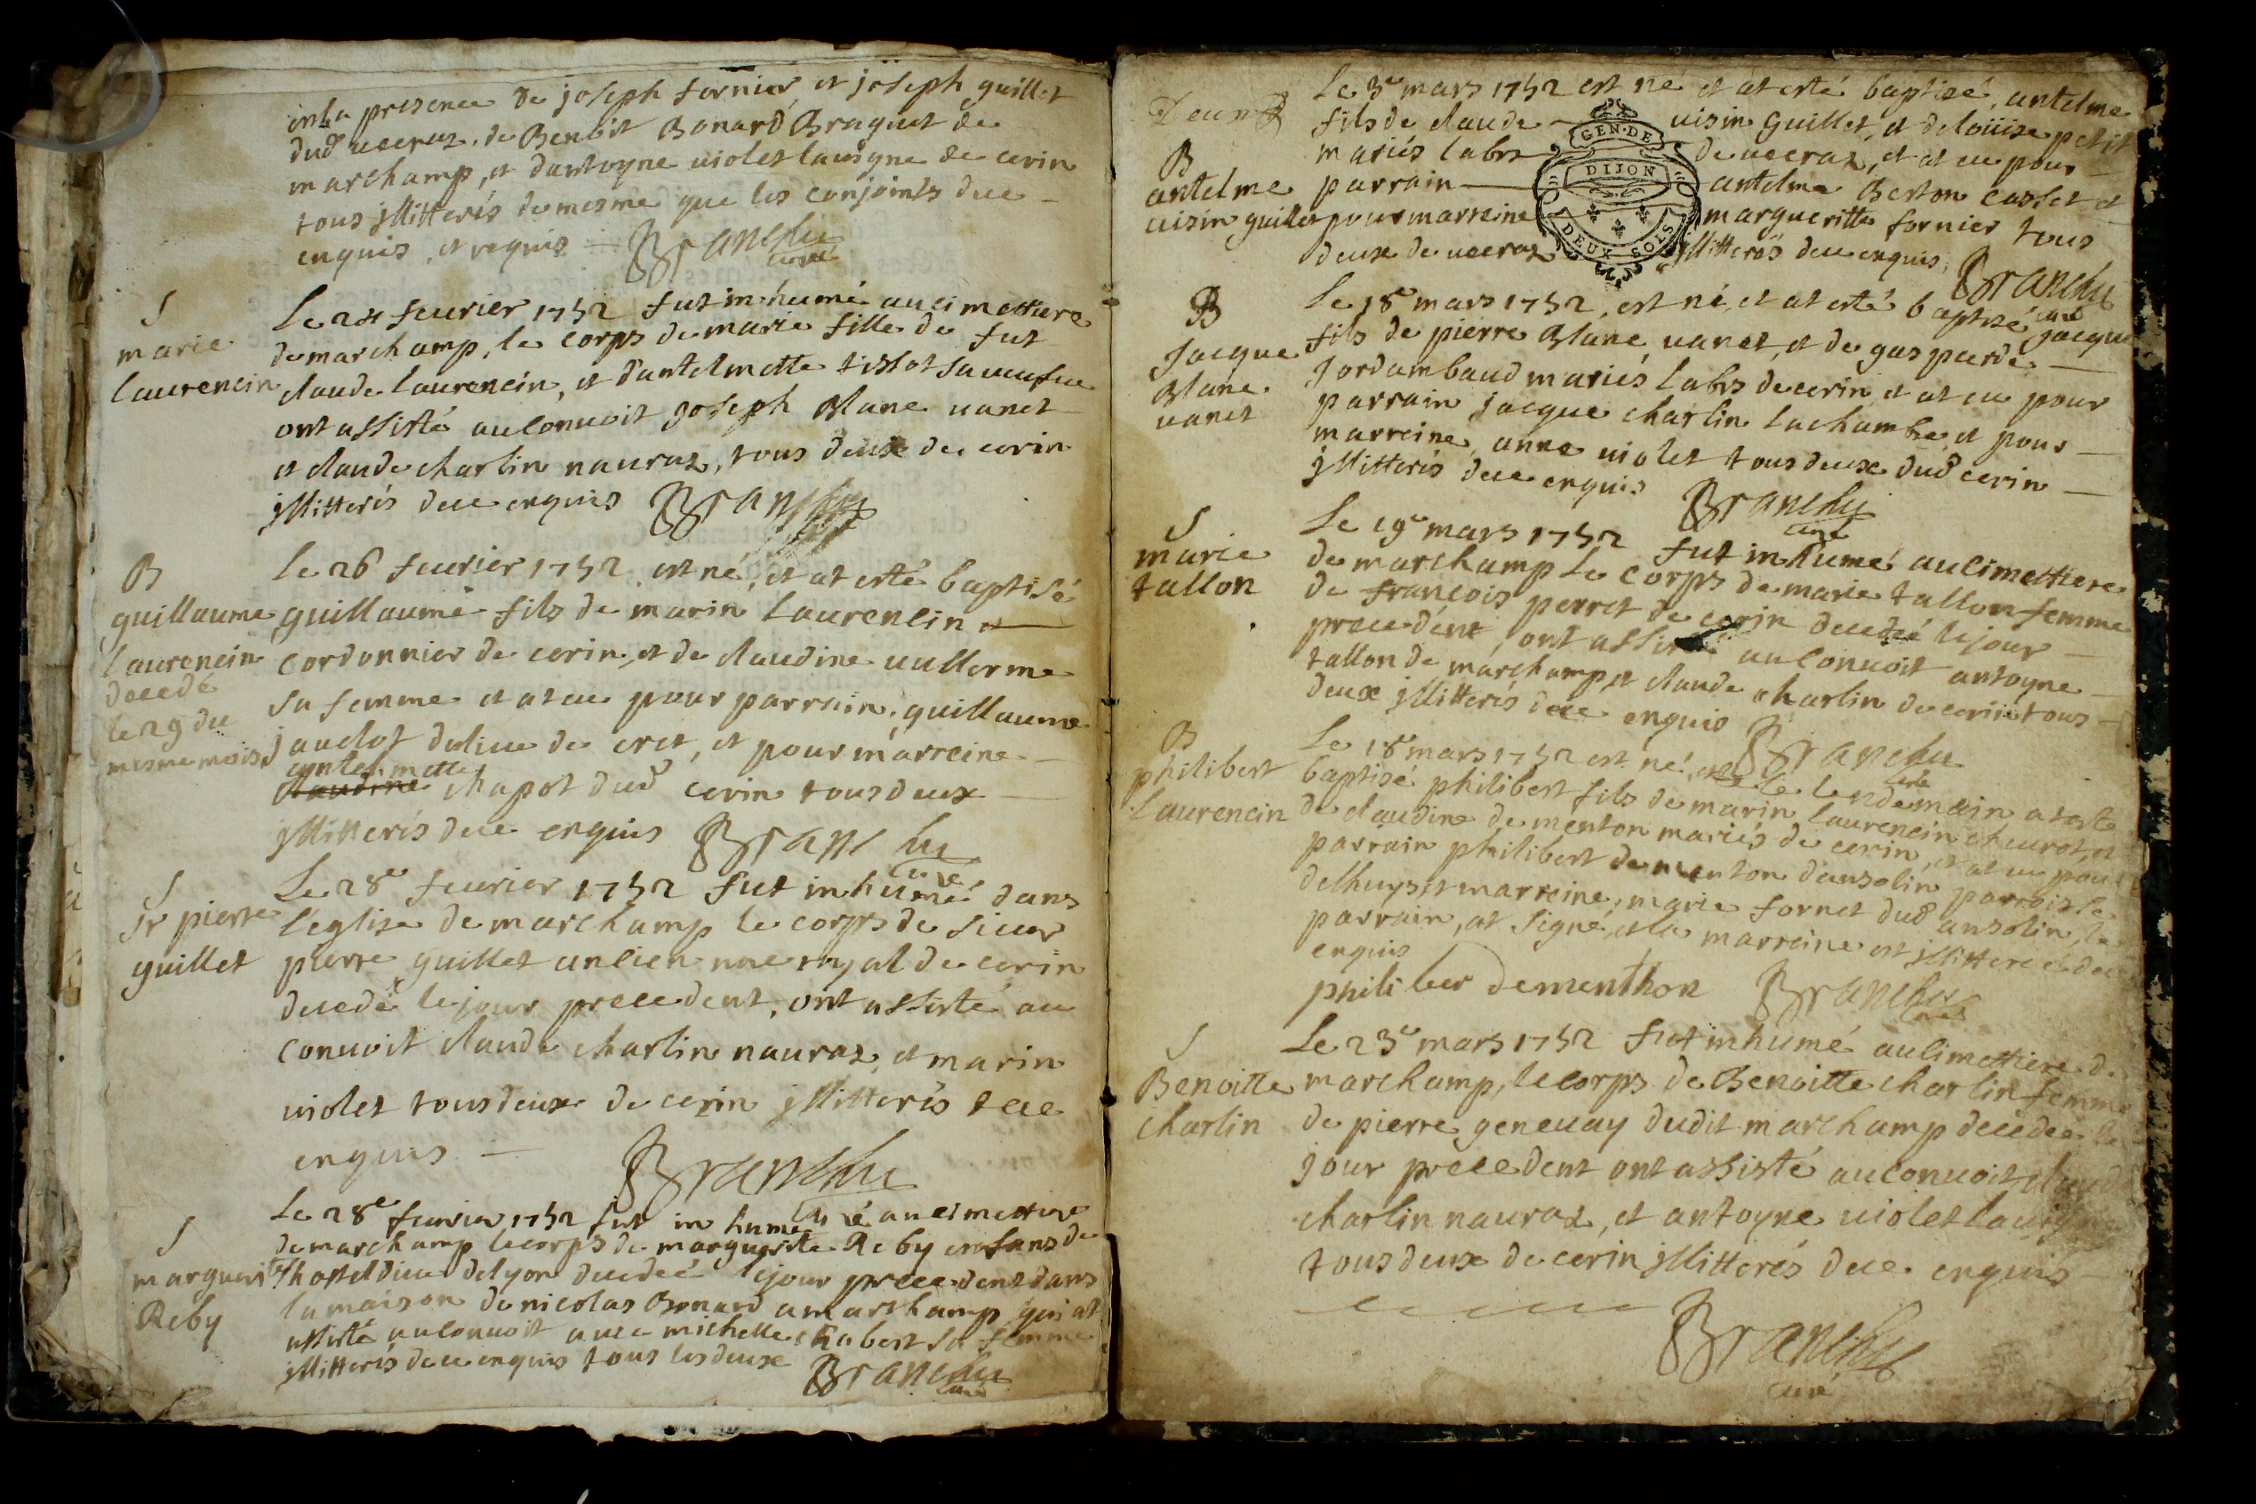 en la presence de joseph fornier et joseph guillet
dud ueeraz, de Benoit Bonard Braquet de
marchamp, et dantoyne uiolet lauigne de cerin
tous jllitterés de mesme que les conjoints dece
enquis, et requis Branchu
curé
S
marie
laurencin
Le 24 feurier 1752 fut inhumé au cimettiere
de marchamp, le corps de marie fille de fut
claude laurencin, et dantelmette tissot sa ueufue
ont assisté au conuoit joseph Blanc uanet
et claude charlin nauraz, tous deux de cerin
jllitterés dece enquis Branchu
B
guillaume
laurencin
decedé
le 29 du
mesme mois
le 26 feurier 1752, est né, et at esté baptisé
guillaume fils de marin laurencin
cordonnier de cerin, et de claudine uullerme
sa femme et at eu pour parrain, guillaume
jauclot du lieu de cret, et pour marreine
antelmette
claudine chapot dud cerin tous deux
jllitterés dece enquis Branchu
curé
S
Sr pierre
guillet
Le 28e feurier 1752 fut inhumé dans
l'églize de marchamp le corps de sieur
pierre guillet ancien nre royal de cerin
decedé le jour precedent, ont assisté au
conuoit claude charlin nauraz, et marin
uiolet tous deux de cerin jllitterés dece
enquis Branchu
curé
S
marguerite
Reby
Le 28e feurier 1752 fut inhumé au cimettiere
de marchamp le corps de marguerite Reby enfans de
l'hostel dieu de lyon decedeé le jour precedent dans
la maison de nicolas Bonard a marchamp qui at
assisté au conuoit auec michelle chabert sa femme
jllitterés dece enquis tous les deux Branchu
curé
Deux
B
antelme
uisin guillet
Le 3e mars 1752 est né et at esté baptizé, antelme
fils de claude uisin guillet, et de loüise petit
mariés labrs de ueeraz, et at eu pour
parrain antelme Berton Casset et
pour marreine margueritte fornier tous
deux de ueeraz jllitterés dece enquis, Branchu
curé
GEN·DE
DIJON
DEUX SOLS
B
Jacque
Blanc
uanet
Le 18e mars 1752, est né, et at esté baptizé jacque
fils de pierre Blanc uanet, et de gasparde
Jordambaud mariés labrs de cerin, et at eu pour
parrain jacque charlin lachambre, et pour
marreine, anne uiolet tous deux dud cerin
jllitterés dece enquis Branchu
curé
S
marie
tallon
Le 19e mars 1752 fut inhumé au cimettiere
de marchamp Le corps de marie tallon femme
de françois perret de cerin decedeé le jour
precedent, ont assisté au conuoit antoyne
tallon de marchamp, et claude charlin de cerin tous
deux jllitterés dece enquis Branchu
curé
B
philibert
Laurencin
Le 18e mars 1752 est né, et le lendemain at esté
baptizé philibert fils de marin laurencin cheurot, et
de claudine dementon mariés de cerin, et at eu pour
parrain philibert dementon d'ansolin parroisse
delhuys, et marreine, marie fornet dud ansolin, le
parrain, at signé, et la marreine est jllittereé dece
enquis
philiber dementhon Branchu
curé
S
Benoitte
charlin
Le 23e mars 1752 fut inhumé au cimettiere de
marchamp, le corps de Benoitte charlin femme
de pierre geneuay dudit marchamp decedeé le
jour precedent ont assisté au conuoit claude
charlin nauraz, et antoyne uiolet lauigne
tous deux de cerin jllitterés dece enquis
Branchu
curé